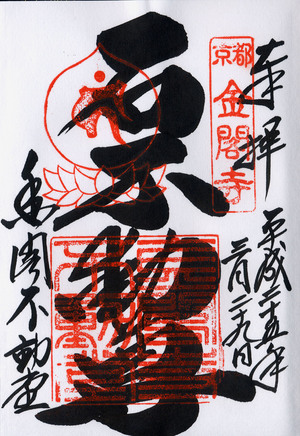 奉拝
平成二十五年
三月二十九日
京都
金閣寺
石不動尊
金閣不動堂